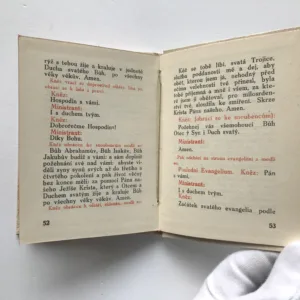 rýž a tebou žije a kraluje v jednotě
Ducha svatého Bůh, po všechny
věky věkův. Amen.
Kněz:
Hospodin s vámi.
Ministrant:
I s duchem tvým.
Kněz:
Dobrořečme Hospodinu!
Ministrant:
Díky Bohu.
Bůh Abrahamův, Bůh Isákův, Bůh
Jakubův budiž s vámi a
požehnání své na vás,
syny synů vašich až do třetího a
čtvrtého pokolení a pak život věčný
bez konce; s pomocí Pána našeho
Ježíše Krista, který s Otcem a
Duchem svatým žije a kraluje Bůh
po všechny věky věkův. Amen.
52
Kéž se tobě líbí, svatá Trojice,
služba poddanosti mé a dej, aby
oběť, kterou jsem já, nehodný před
tvé velebnosti přinesl, tobě byla
příjemná a mně i všem, za které
jsem ji obětoval, pro milosrdenství
tvé, stala se smířením. Skrze
Krista Pána našeho. Amen.
Požehnej vás všemohoucí Bůh
Otec † Syn i Duch svatý.
Ministrant:
Amen.
Poslední Evangelium. Kněz: Pán s
vámi.
Ministrant:
I s duchem tvým.
Kněz:
Začátek svatého evangelia podle
53